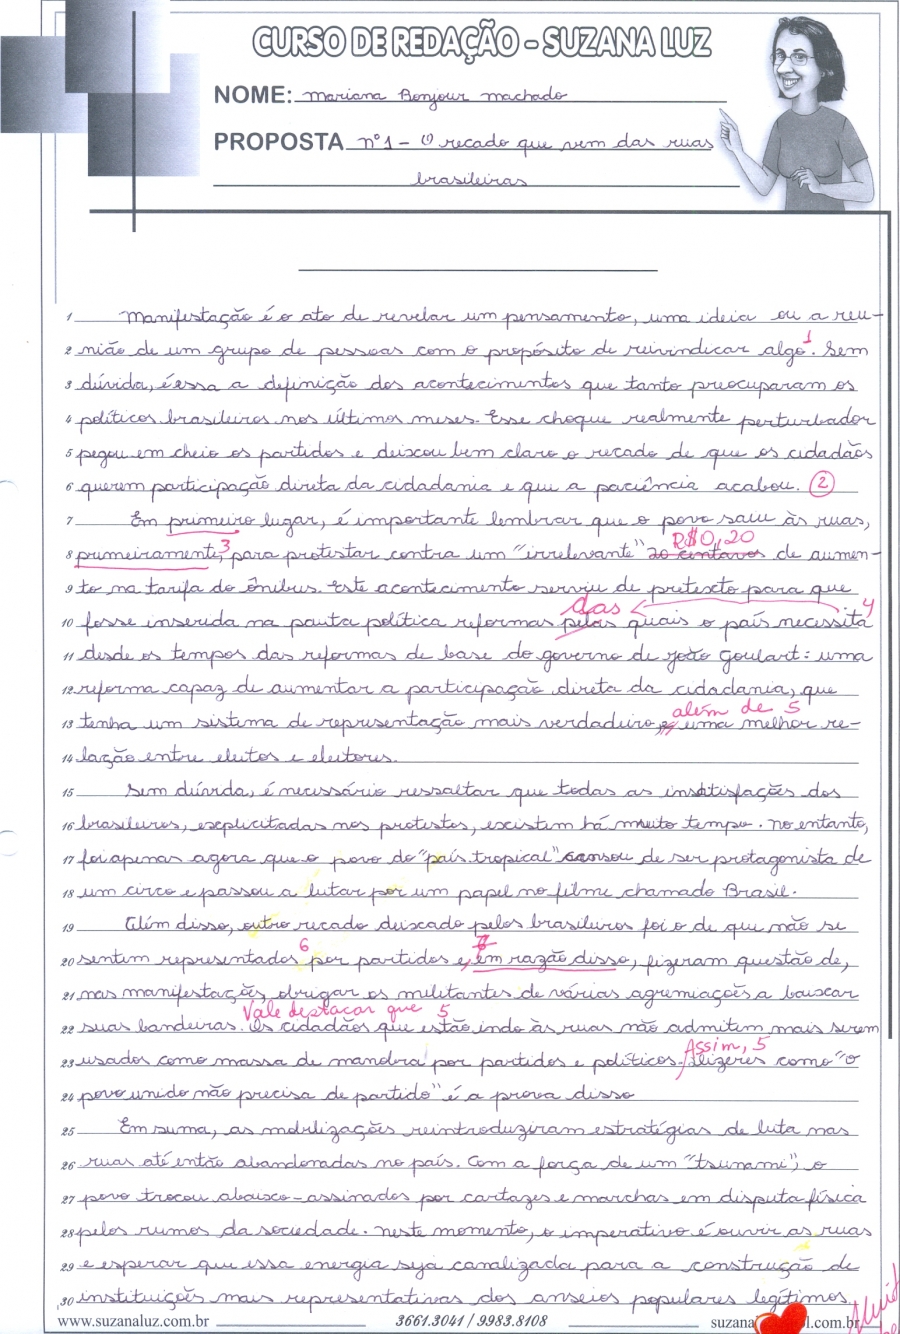 CURSO DE REDAÇÃO - SUZANA LUZ
NOME: Mariana Bonjour Machado
PROPOSTA nº 1 - O recado que vem das ruas
brasileiras
1 Manifestação é o ato de revelar um pensamento, uma ideia ou a reu-
2 nião de um grupo de pessoas com o propósito de reivindicar algo. 1 Sem
3 dúvida, é essa a definição dos acontecimentos que tanto preocuparam os
4 políticos brasileiros nos últimos meses. Esse choque realmente perturbador
5 pegou em cheio os partidos e deixou bem claro o recado de que os cidadãos
6 querem participação direta da cidadania e que a paciência acabou. 2
7 Em primeiro lugar, é importante lembrar que o povo saiu às ruas,
R$0,20
8 primeiramente, 3 para protestar contra um "irrelevante" 20 centavos de aumen-
9 to na tarifa do ônibus. Este acontecimento serviu de pretexto para que
das 4
10 fosse inserida na pauta política reformas pelas quais o país necessita
11 desde os tempos das reformas de base do governo de João Goulart: uma
12 reforma capaz de aumentar a participação direta da cidadania, que
além de 5
13 tenha um sistema de representação mais verdadeiro, e uma melhor re-
14 lação entre eleitos e eleitores.
15 Sem dúvida, é necessário ressaltar que todas as insatisfações dos
16 brasileiros, explicitadas nos protestos, existem há muito tempo. No entanto,
17 foi apenas agora que o povo do "país tropical" cansou de ser protagonista de
18 um circo e passou a lutar por um papel no filme chamado Brasil.
19 Além disso, outro recado deixado pelos brasileiros foi o de que não se
6 7
20 sentem representados por partidos e, em razão disso, fizeram questão de,
21 nas manifestações, obrigar os militantes de várias agremiações a baixar
Vale destacar que 5
22 suas bandeiras. Os cidadãos que estão indo às ruas não admitem mais serem
Assim, 5
23 usados como massa de manobra por partidos e políticos. Dizeres como "o
24 povo unido não precisa de partido" é a prova disso
25 Em suma, as mobilizações reintroduziram estratégias de luta nas
26 ruas até então abandonadas no país. Com a força de um "tsunami", o
27 povo trocou abaixo-assinados por cartazes e marchas em disputa física
28 pelos rumos da sociedade. Neste momento, o imperativo é ouvir as ruas
29 e esperar que essa energia seja canalizada para a construção de
30 instituições mais representativas dos anseios populares legítimos.
www.suzanaluz.com.br 3661.3041 / 9983.8108